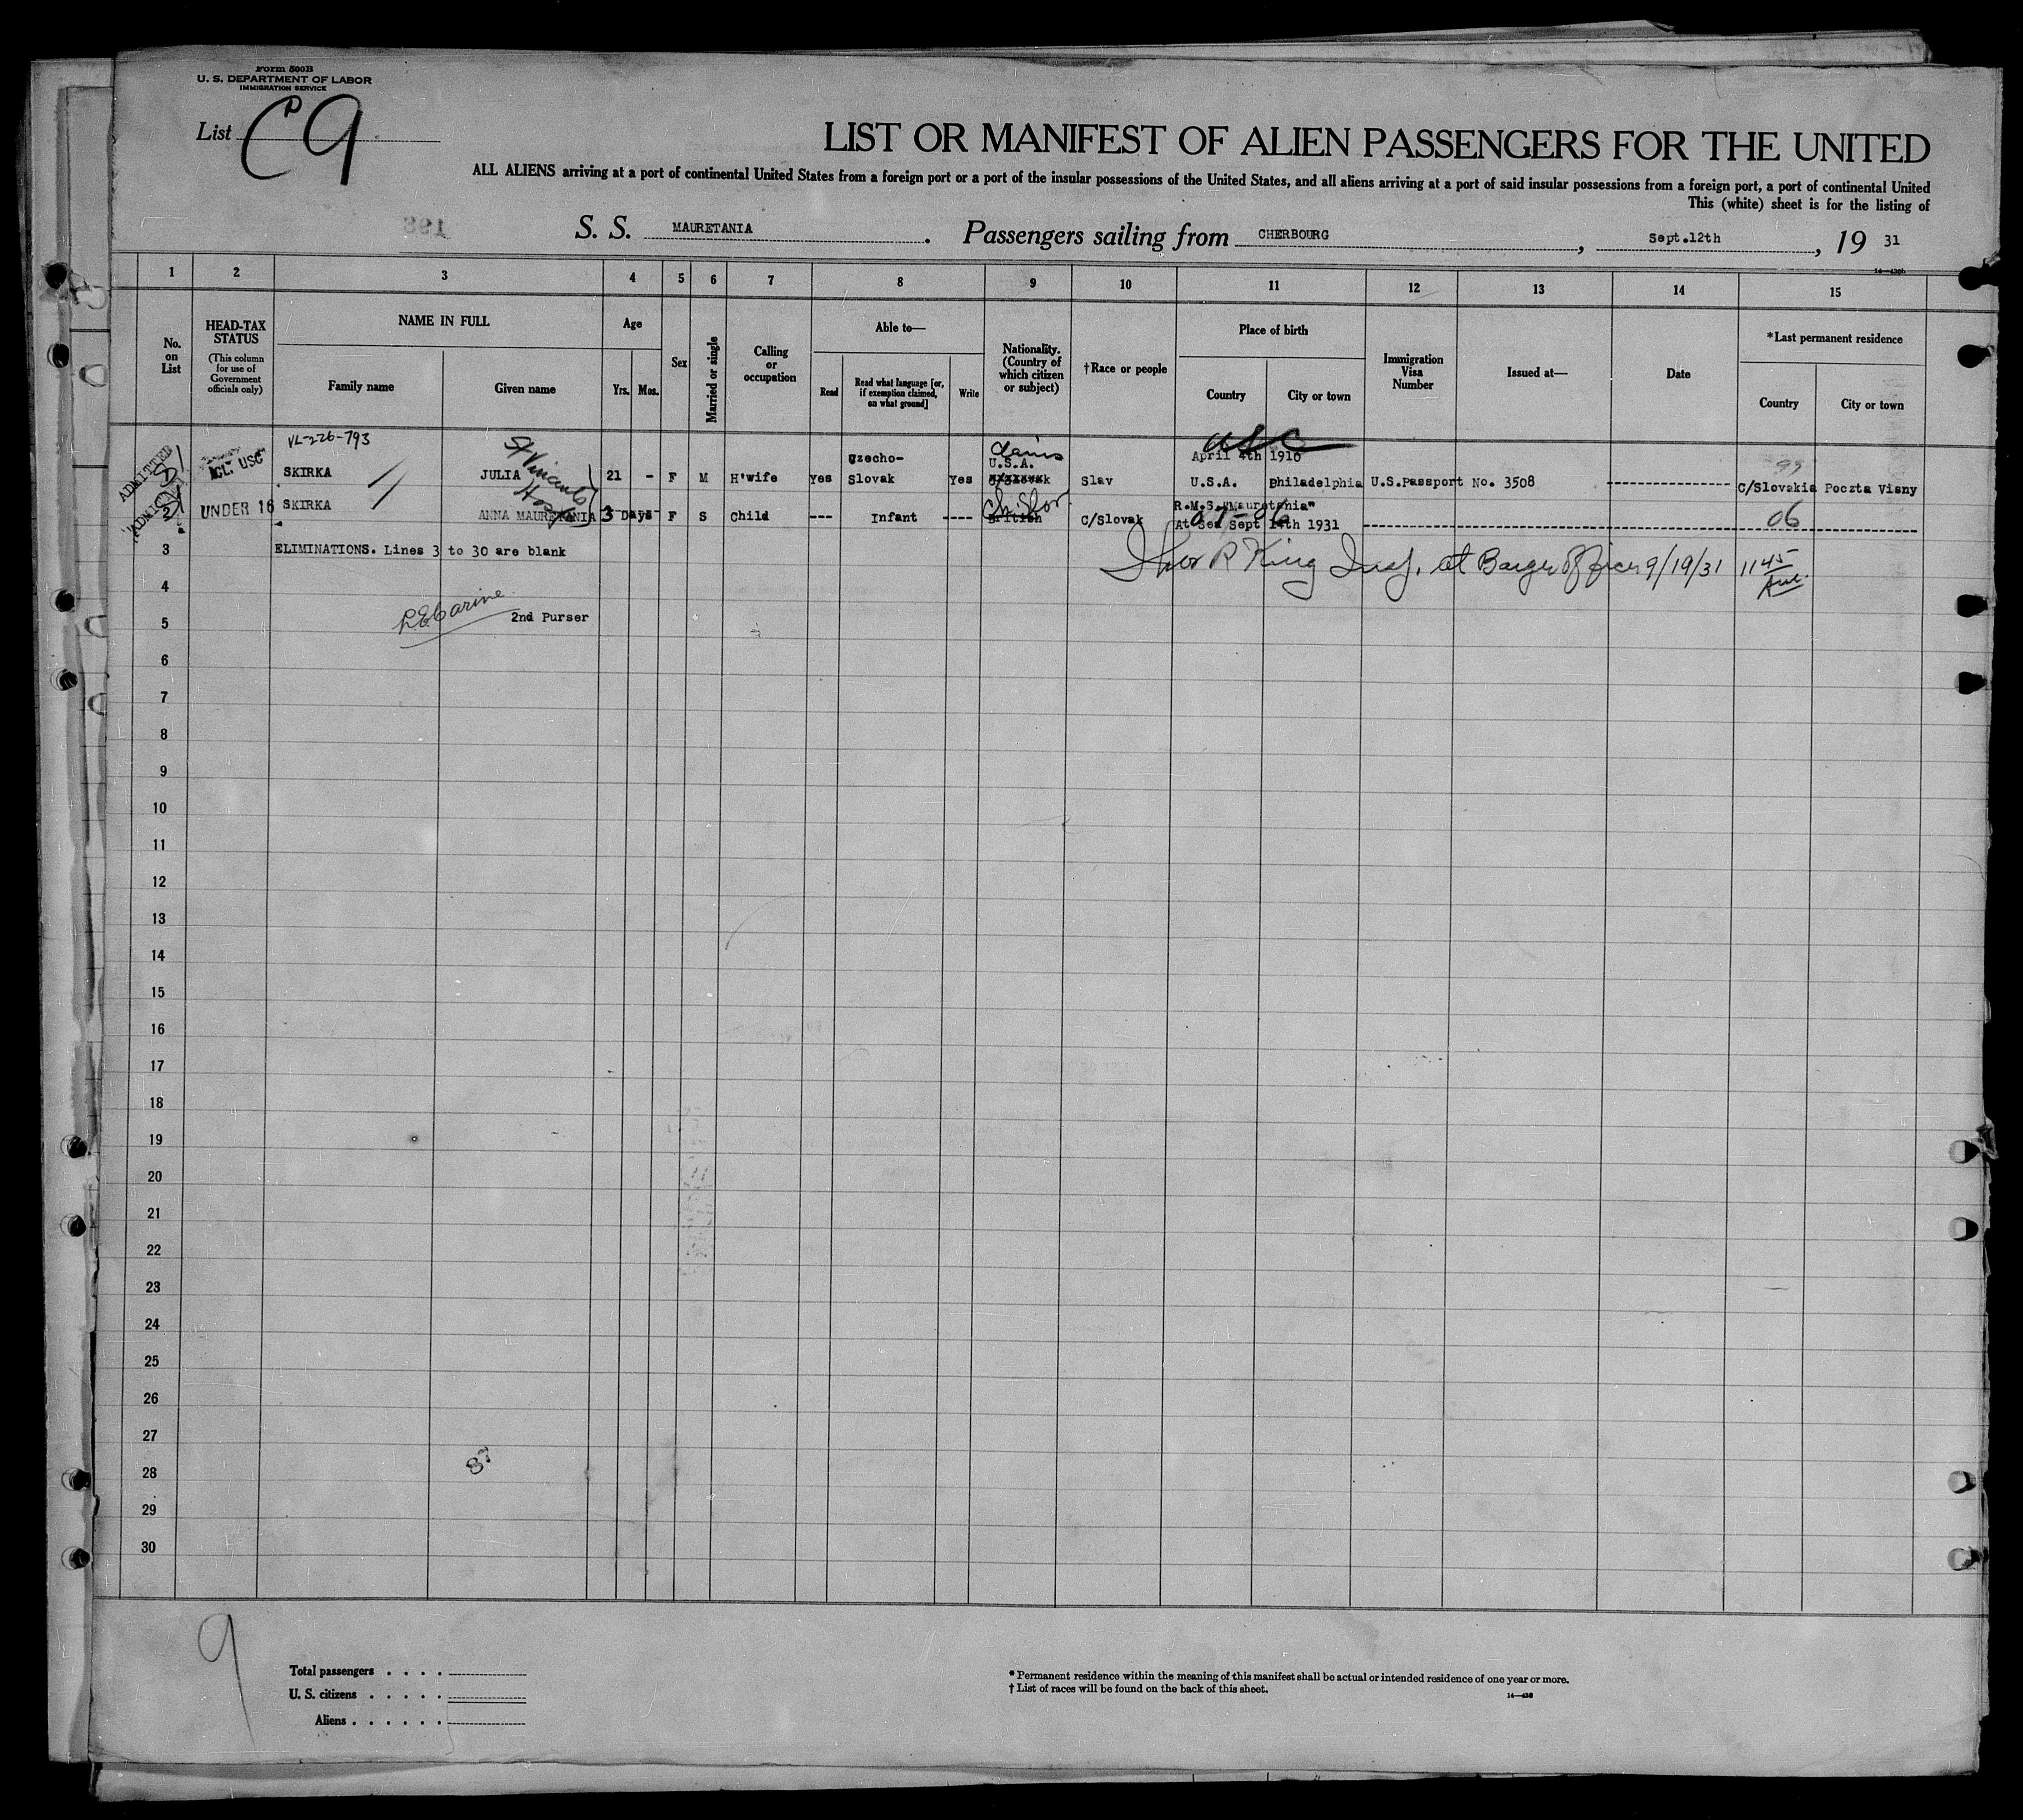 Form 500B
U. S. DEPARTMENT OF LABOR
IMMIGRATION SERVICE
List C P 9
LIST OR MANIFEST OF ALIEN PASSENGERS FOR THE UNITED
ALL ALIENS arriving at a port of continental United States from a foreign port or a port of the insular possessions of the United States, and all aliens arriving at a port of said insular possessions from a foreign port, a port of continental United
This (white) sheet is for the listing of
198
S. S. MAURETANIA. Passengers sailing from CHERBOURG, Sept.12th, 19 31
1 2 3 4 5 6 7 8 9 10 11 12 13 14 15
No. on List
HEAD-TAX STATUS (This column for use of Government officials only)
NAME IN FULL
Family name Given name
Age
Yrs. Mos.
Sex
Married or single
Calling or occupation
Able to—
Read Read what language [or, if exemption claimed, on what ground] Write
Nationality. (Country of which citizen or subject)
†Race or people
Place of birth
Country City or town
Immigration Visa Number
Issued at—
Date
*Last permanent residence
Country City or town
VL-226-793
St Vincents Hosp
Claims
April 4th 1910
ADMITTED
USC
SKIRKA JULIA 21 - F M H'wife Yes Czecho-Slovak Yes U.S.A. Slav U.S.A. Philadelphia U.S.Passport No. 3508 C/Slovakia Poczta Visny
99
ADMITTED
2 UNDER 16 SKIRKA ANNA MAURETANIA 3 Days F S Child --- Infant ---- British C/Slovak R.M.S."Mauretania" At Sea Sept 14th 1931
06
3 ELIMINATIONS. Lines 3 to 30 are blank
R King Insp. at Barge Office 9/19/31 11 45 Am.
4
2nd Purser
5
6
7
8
9
10
11
12
13
14
15
16
17
18
19
20
21
22
23
24
25
26
27
28
29
30
9
Total passengers . . . .
U. S. citizens . . . . .
Aliens . . . . . .
* Permanent residence within the meaning of this manifest shall be actual or intended residence of one year or more.
† List of races will be found on the back of this sheet.